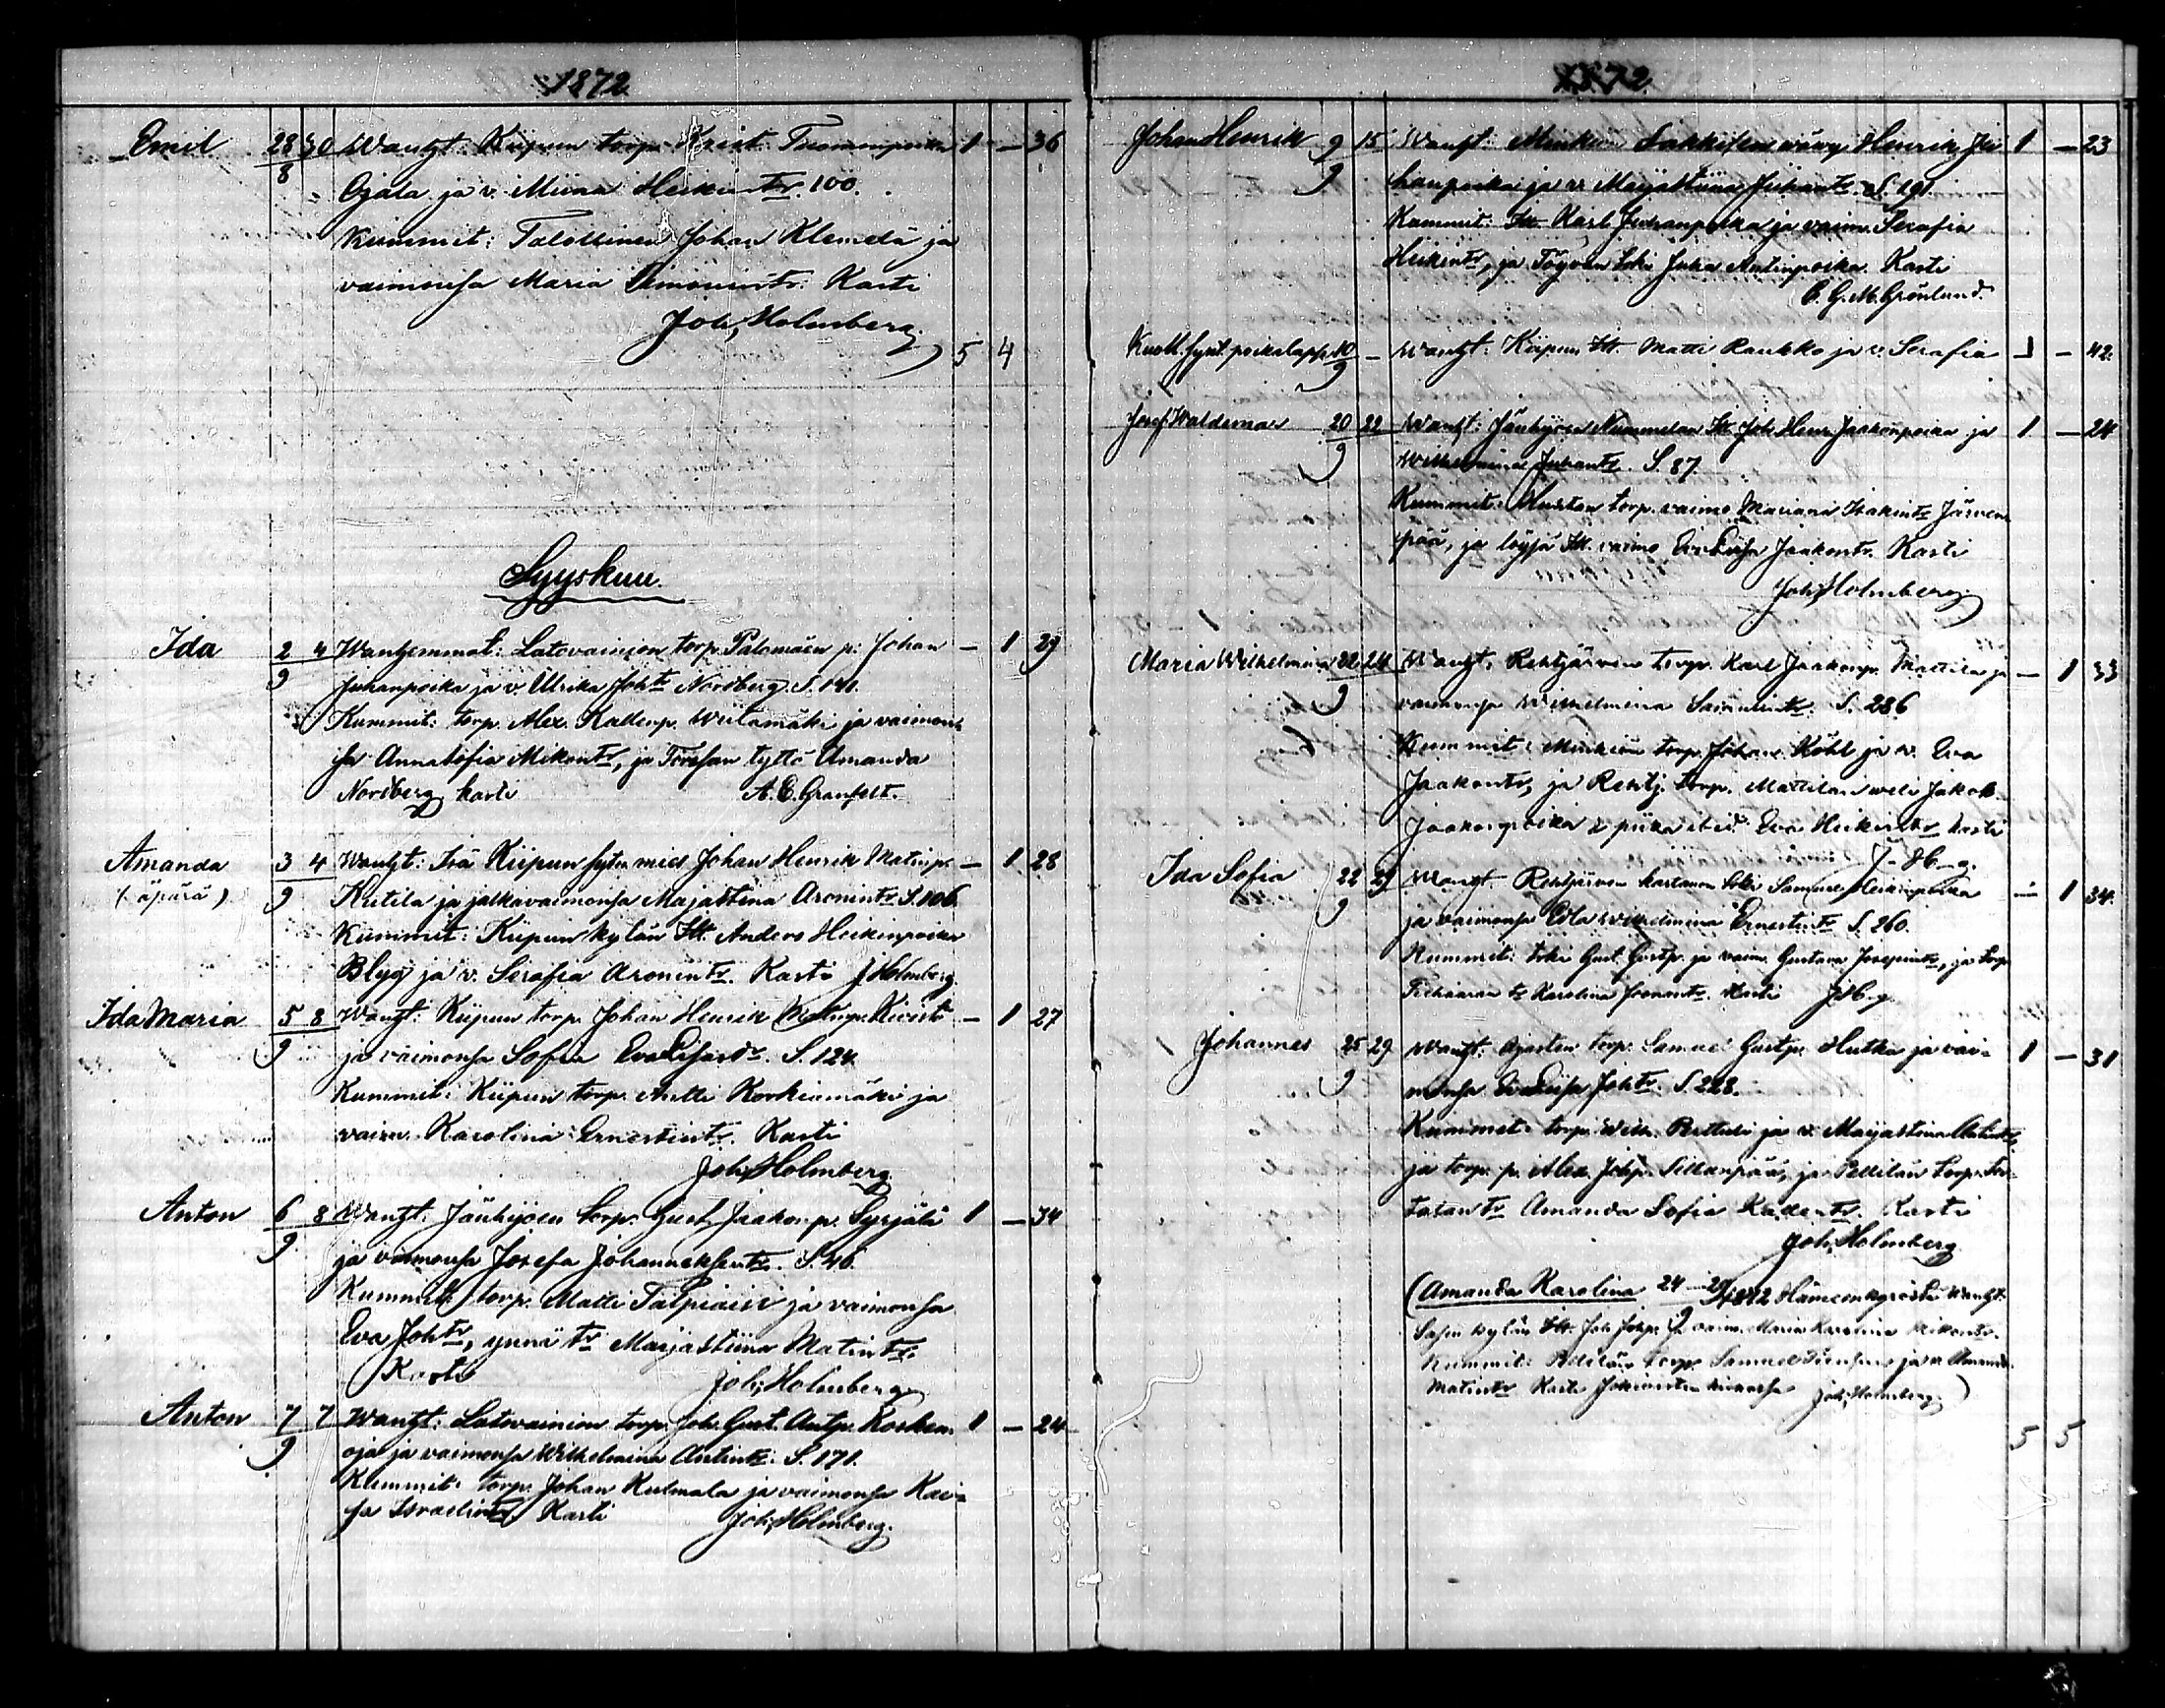 1872
Emil 28/8 30 Wanht. Kiipun torp. Krist. Tuomenpoika 1 — 36
Ojala ja v. Miina Heikintr. 100.
Kummit: Talollinen Johan Klemelä ja
vaimonsa Maria Simonintr. Kasti
Joh. Holmberg.
5 4
Syyskuu.
Ida 2/9 4 Wanhemmat: Latovainion torp. Palomäen p: Johan — 1 29
Juhanpoika ja v. Ulrika Joh.tr Nordberg. S. 141.
Kummit: torp. Alex. Kallenp. Wiitamäki ja vaimon
sa Annasofia Mikontr, ja Forssan tyttö Amanda
Nordberg kasti A. E. Granfelt.
Amanda 3/9 4 Wanht: Itä Kiipun Johan Henrik Matinp. — 1 28
(äpärä) Kutila ja jalkavaimonsa Majastina Aronintr S. 106.
Kummit: Kiipun kylän Itt. Anders Heikinpoika
Blyg ja v. Serafia Aronintr. Kasti J. Holmberg.
Ida Maria 5/9 8 Wanht: Kiipun torp. Johan Henrik Matinp. Kivistö — 1 27
ja vaimonsa Sofia S. 124
Kummit: Kiipun torp. Antti Korkiamäki ja
vaim. Karolina Ernestintr. Kasti
Joh. Holmberg.
Anton 6/9 8 Wanht: Jänhijoen torp. Gust. Jaakonp. Syrjälä 1 — 34
ja vaimonsa Josefa Johanneksentr. S.
Kummit: torp. Matti Talpiain ja vaimonsa
Eva Johtr, ynnä tr Marjastiina Matintr.
Kasti Joh. Holmberg.
Anton 7/9 7 Wanht: Latovainion torp. Joh. Gust. Antp. Kosken 1 — 24
oja ja vaimonsa Wilhelmina Antintr. S. 171.
Kummit: torp. Johan Kulmala ja vaimonsa Kai-
sa Israelintr. Kasti Joh. Holmberg.
1872
Johan Henrik 9/9 15 Wanht: Minkiön wäwy Henrik Ju 1 — 23
hanpoika ja v. Maijastiina Juhantr S. 191.
Kummit: Itt. Karl Juhanpoika ja vaim. Serafia
Heikintr, ja Juha Antinpoika. Kasti
C. G. M. Grönlund.
Kuoll. synt. poikalaps 10/9 — Wanht: Kiipun Itt. Matti Raukko ja v. Serafia 1 — 42.
Josef Waldemar 20/9 22 Wanht: Jänhijoen Nummelan Itt. Joh. Henr. Jaakonpoika ja 1 — 24
Wilhelmina Juhantr. S. 87.
Kummit: torp. vaimo Mariana Isakintr Järven
pää, ja Itt. vaimo Evaliisa Jaakontr. Kasti
Joh. Holmberg.
Maria Wilhelmina 22/9 24 Wanht: Rehtjärven torp. Karl Jaakonp. Mattila ja — 1 33
vaimonsa Wilhelmina S. 286
Kummit: Minkiön torp. Johan Köhl ja v. Eva
Jaakontr, ja Rehtj. torp. Mattilan weli Jakob
Jaakonpoika & piika Eva Heikintr kasti
J. Hb-g.
Ida Sofia 22/9 29 Wanht. Rehtjärven kartanon Samuel Heikinpoika — 1 34.
ja vaimonsa Eda Wilhelmina Ernestintr S. 260.
Kummit: Gust. Gustp. ja vaim. Gustava Josepintr, ja torp.
tr Karolina Joonantr. Kasti J. Hb-g.
Johannes 25/9 29 Wanht. torp. Samuel Gustp. Hutka ja vai- 1 — 31
monsa Evaliisa Johtr. S. 228.
Kummit: torp. Wilh. Perttuli ja v. Maijastina Antintr,
ja torp. p. Alex. Johp. Sillanpää, ja Pellilän torp.
tr Amanda Sofia Kallentr. Kasti
Joh. Holmberg.
(Amanda Karolina 24 — 29/9 1872 Hämeenkyröstä Wanht.
kylän Itt. Joh. Johp. ja vaim. Maria Karolina Mikontr.
Kummit: Pellilän torp. Samuel ja v. Amanda
Matintr Kasti Joh. Holmberg.)
5 5